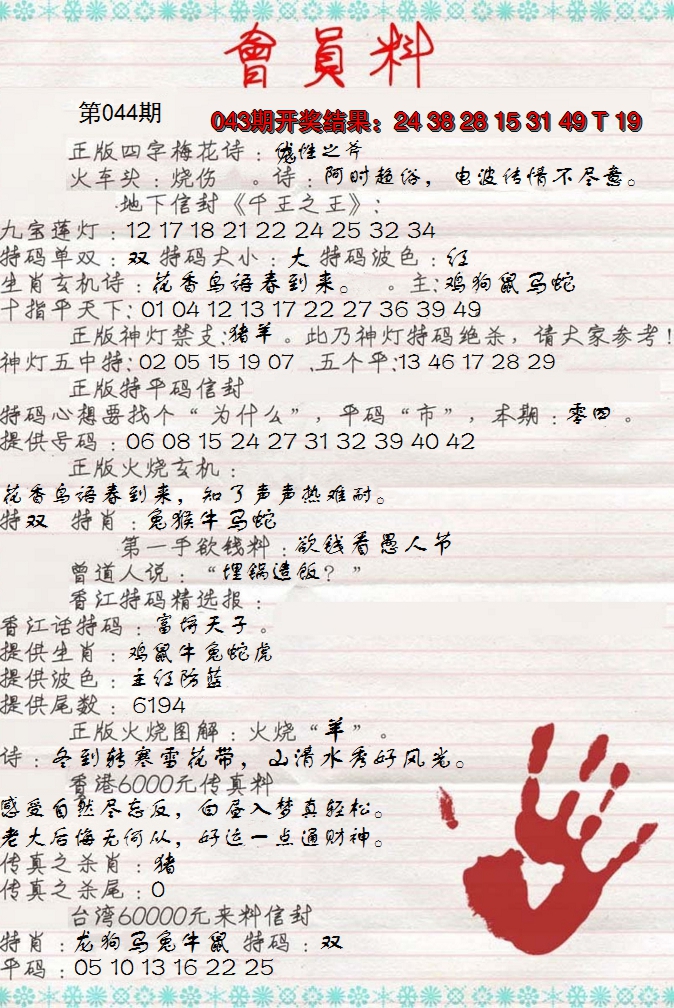 會員料
第044期
043期开奖结果：24 38 28 15 31 49 T 19
正版四字梅花诗：伐性之斧
火车头：烧伤 。诗：阿时趋俗，电波传情不尽意。
地下信封《千王之王》：
九宝莲灯：12 17 18 21 22 24 25 32 34
特码单双：双 特码大小：大 特码波色：红
生肖玄机诗：花香鸟语春到来。 。主：鸡狗鼠马蛇
十指平天下：01 04 12 13 17 22 27 36 39 49
正版神灯禁支：猪羊 。此乃神灯特码绝杀，请大家参考！
神灯五中特：02 05 15 19 07 .五个平：13 46 17 28 29
正版特平码信封
特码心想要找个“为什么”，平码“市”，本期：零四 。
提供号码：06 08 15 24 27 31 32 39 40 42
正版火烧玄机：
花香鸟语春到来，知了声声热难耐。
特双 特肖：兔猴牛马蛇
第一手欲钱料：欲钱看愚人节
曾道人说：“埋锅造饭？”
香江特码精选报：
香江话特码：富埒天子 。
提供生肖：鸡鼠牛兔蛇虎
提供波色：主红防蓝
提供尾数：6194
正版火烧图解：火烧“羊”。
诗：冬到转寒雪花带，山清水秀好风光。
香港6000元传真料
感受自然尽忘反，白昼入梦真轻松。
老大后悔无何从，好运一点通财神。
传真之杀肖：猪
传真之杀尾：0
台湾60000元来料信封
特肖：龙狗马兔牛鼠 特码：双
平码：05 10 13 16 22 25